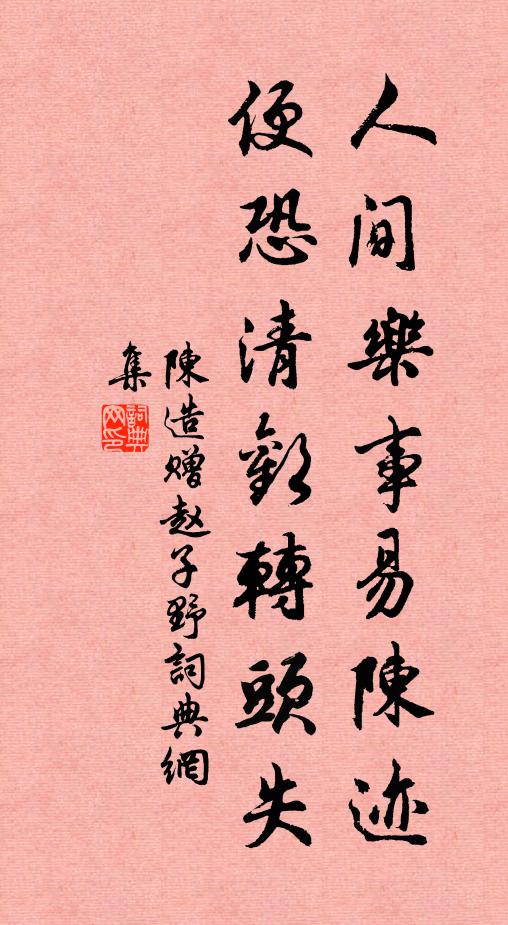 人間樂事易陳迹
便恐清歡轉頭失
陳造贈趙子野詞典網
集
詞典
网印